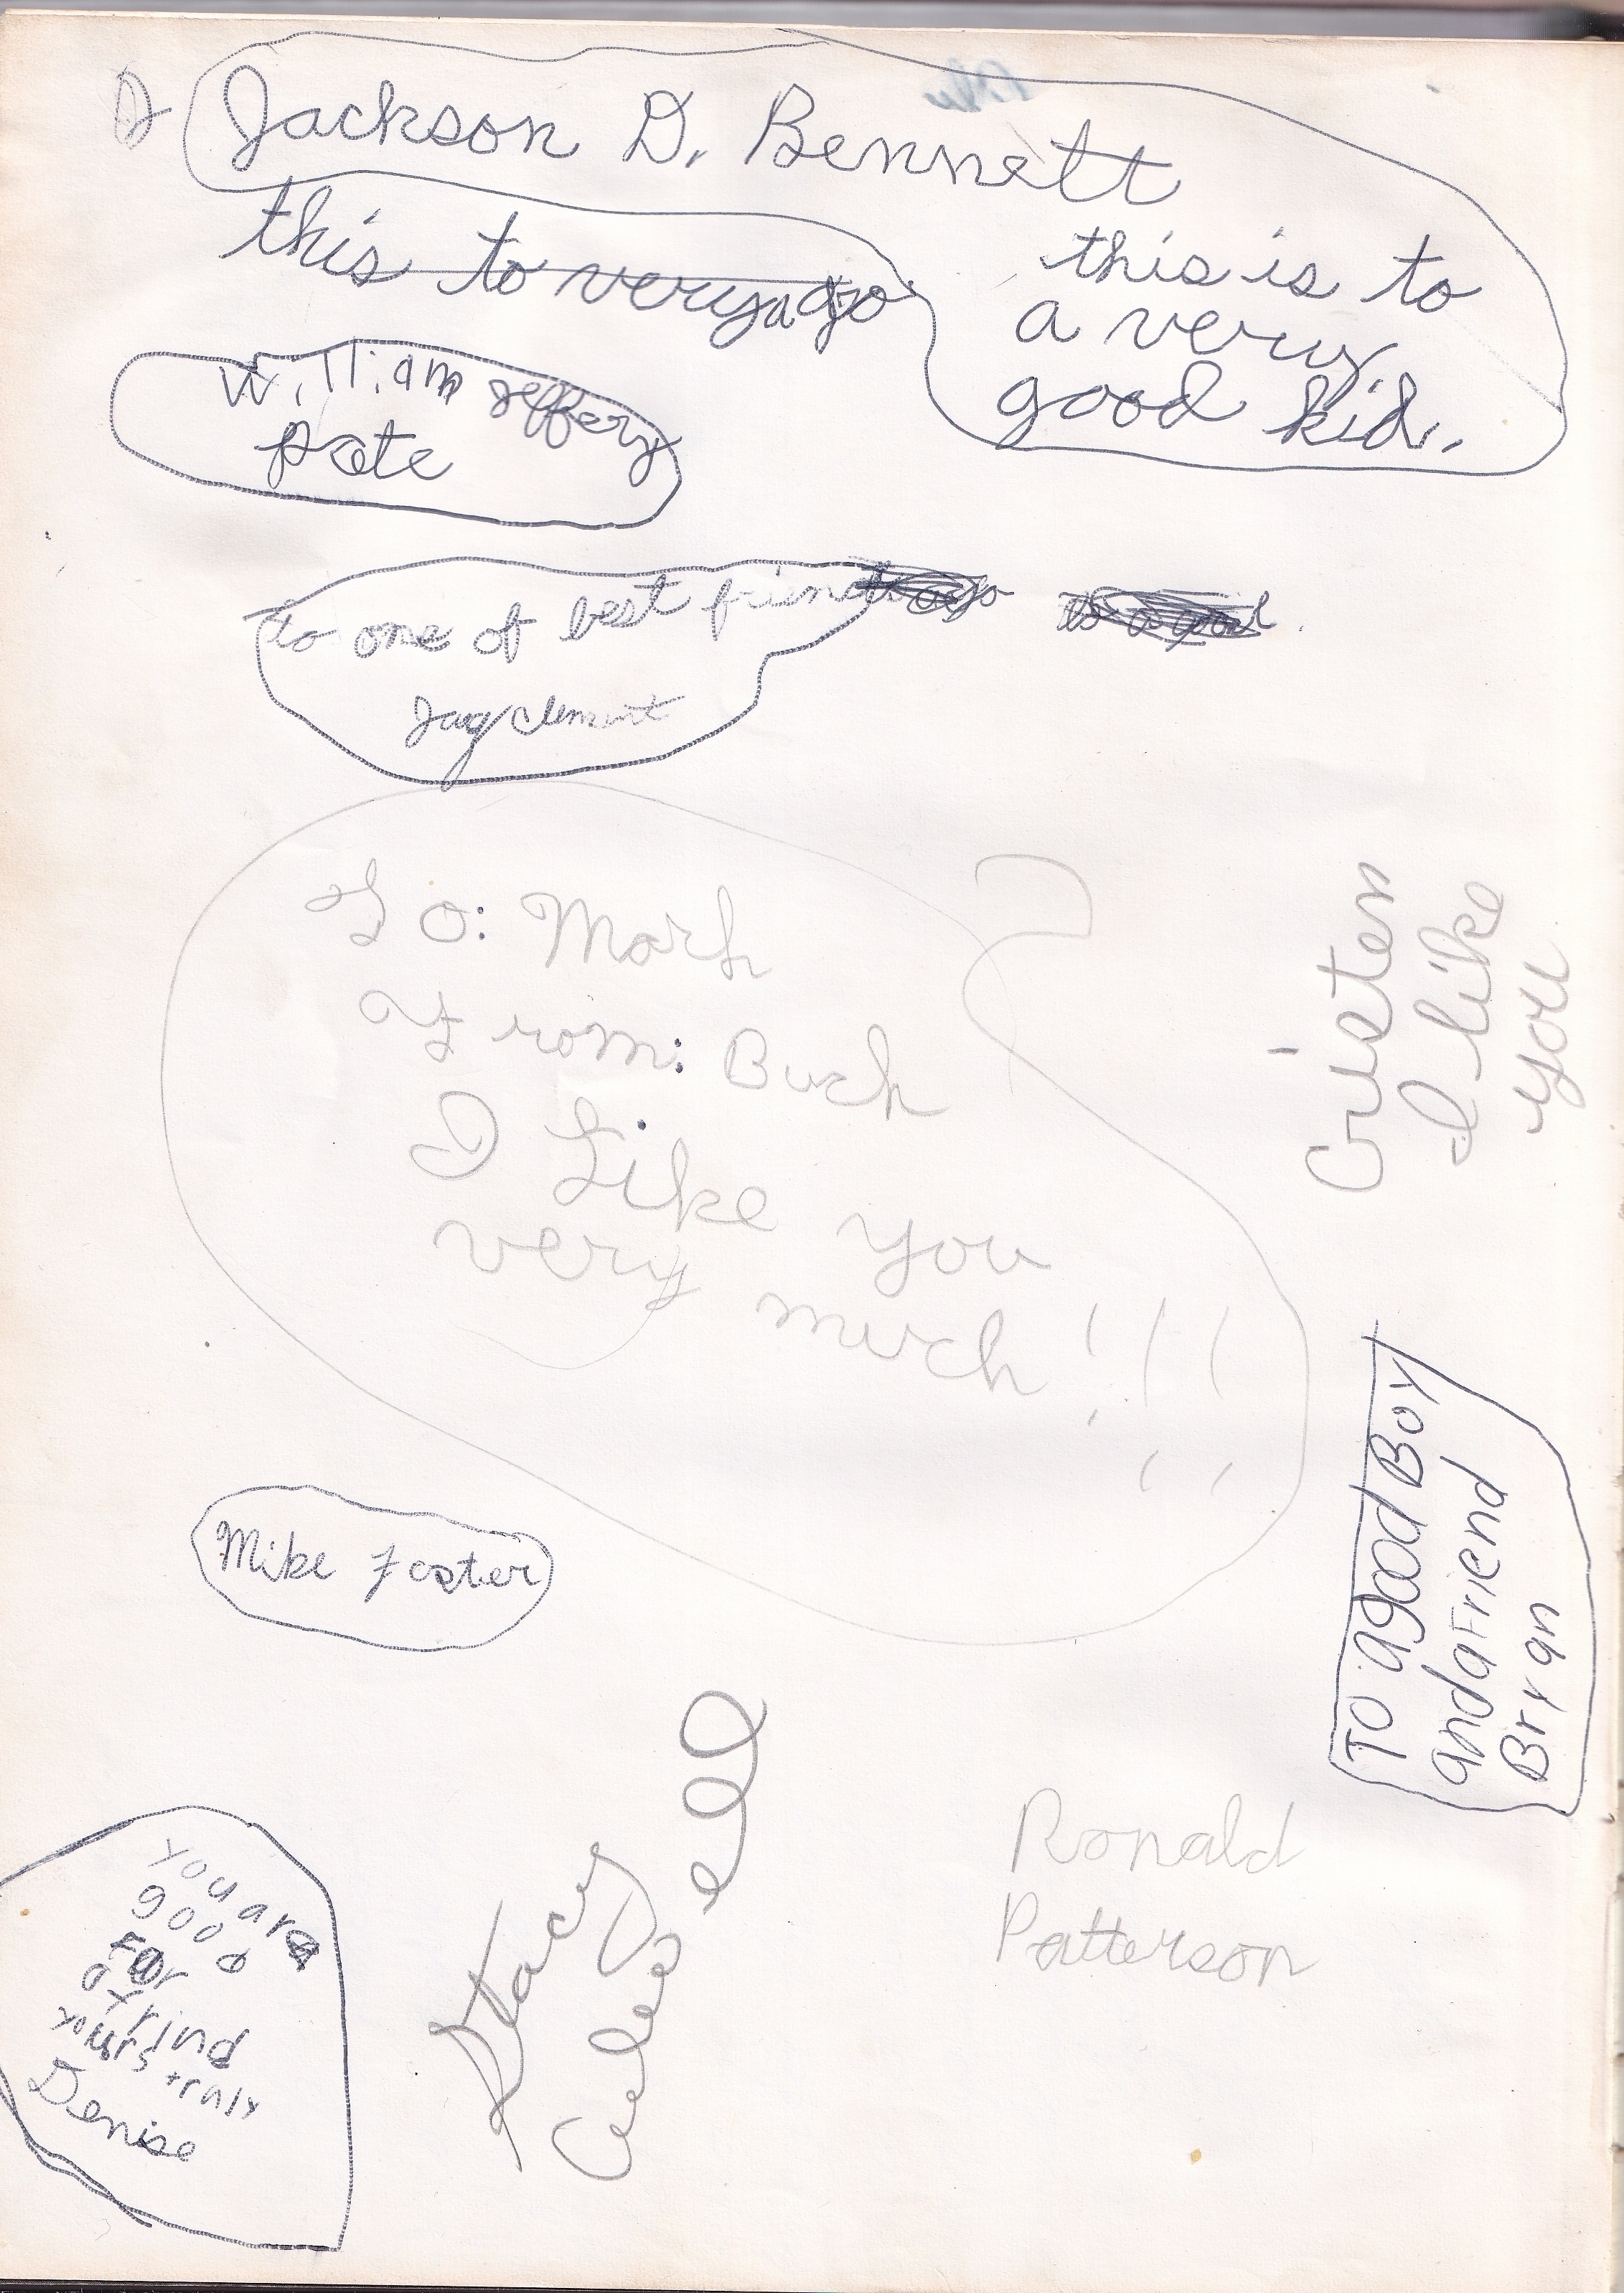 Jackson D. Bennett
this is to
a very
good kid.
this to very a go
William Jeffery
pate
to one of best friend
Jay Clement
To: Mark
From: Buck
I Like you
very much!!!
Cristen
I like
you
TO a good Boy
and a Friend
Bryan
Mike Foster
Stacy
Ronald
Patterson
You are
good
For
a frind
yours truly
Denise